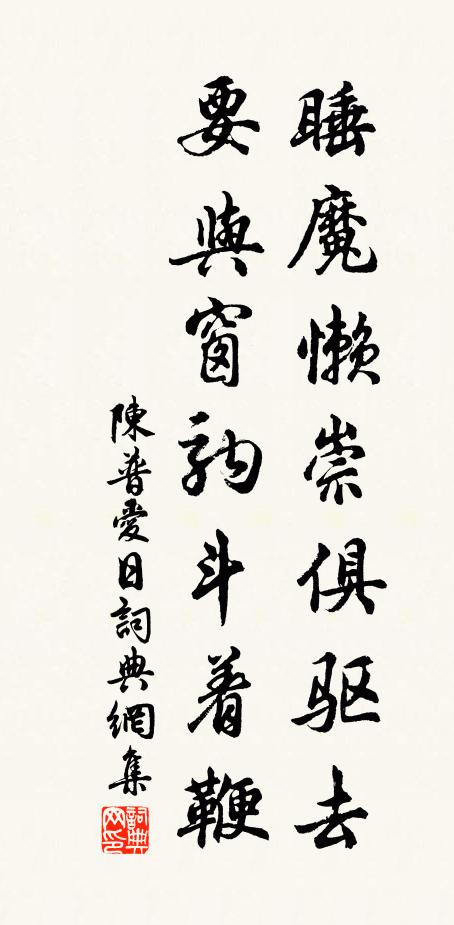 睡魔懒崇俱驱去
要與窗駒斗着鞭
陳普愛日詞典網集
詞典网印